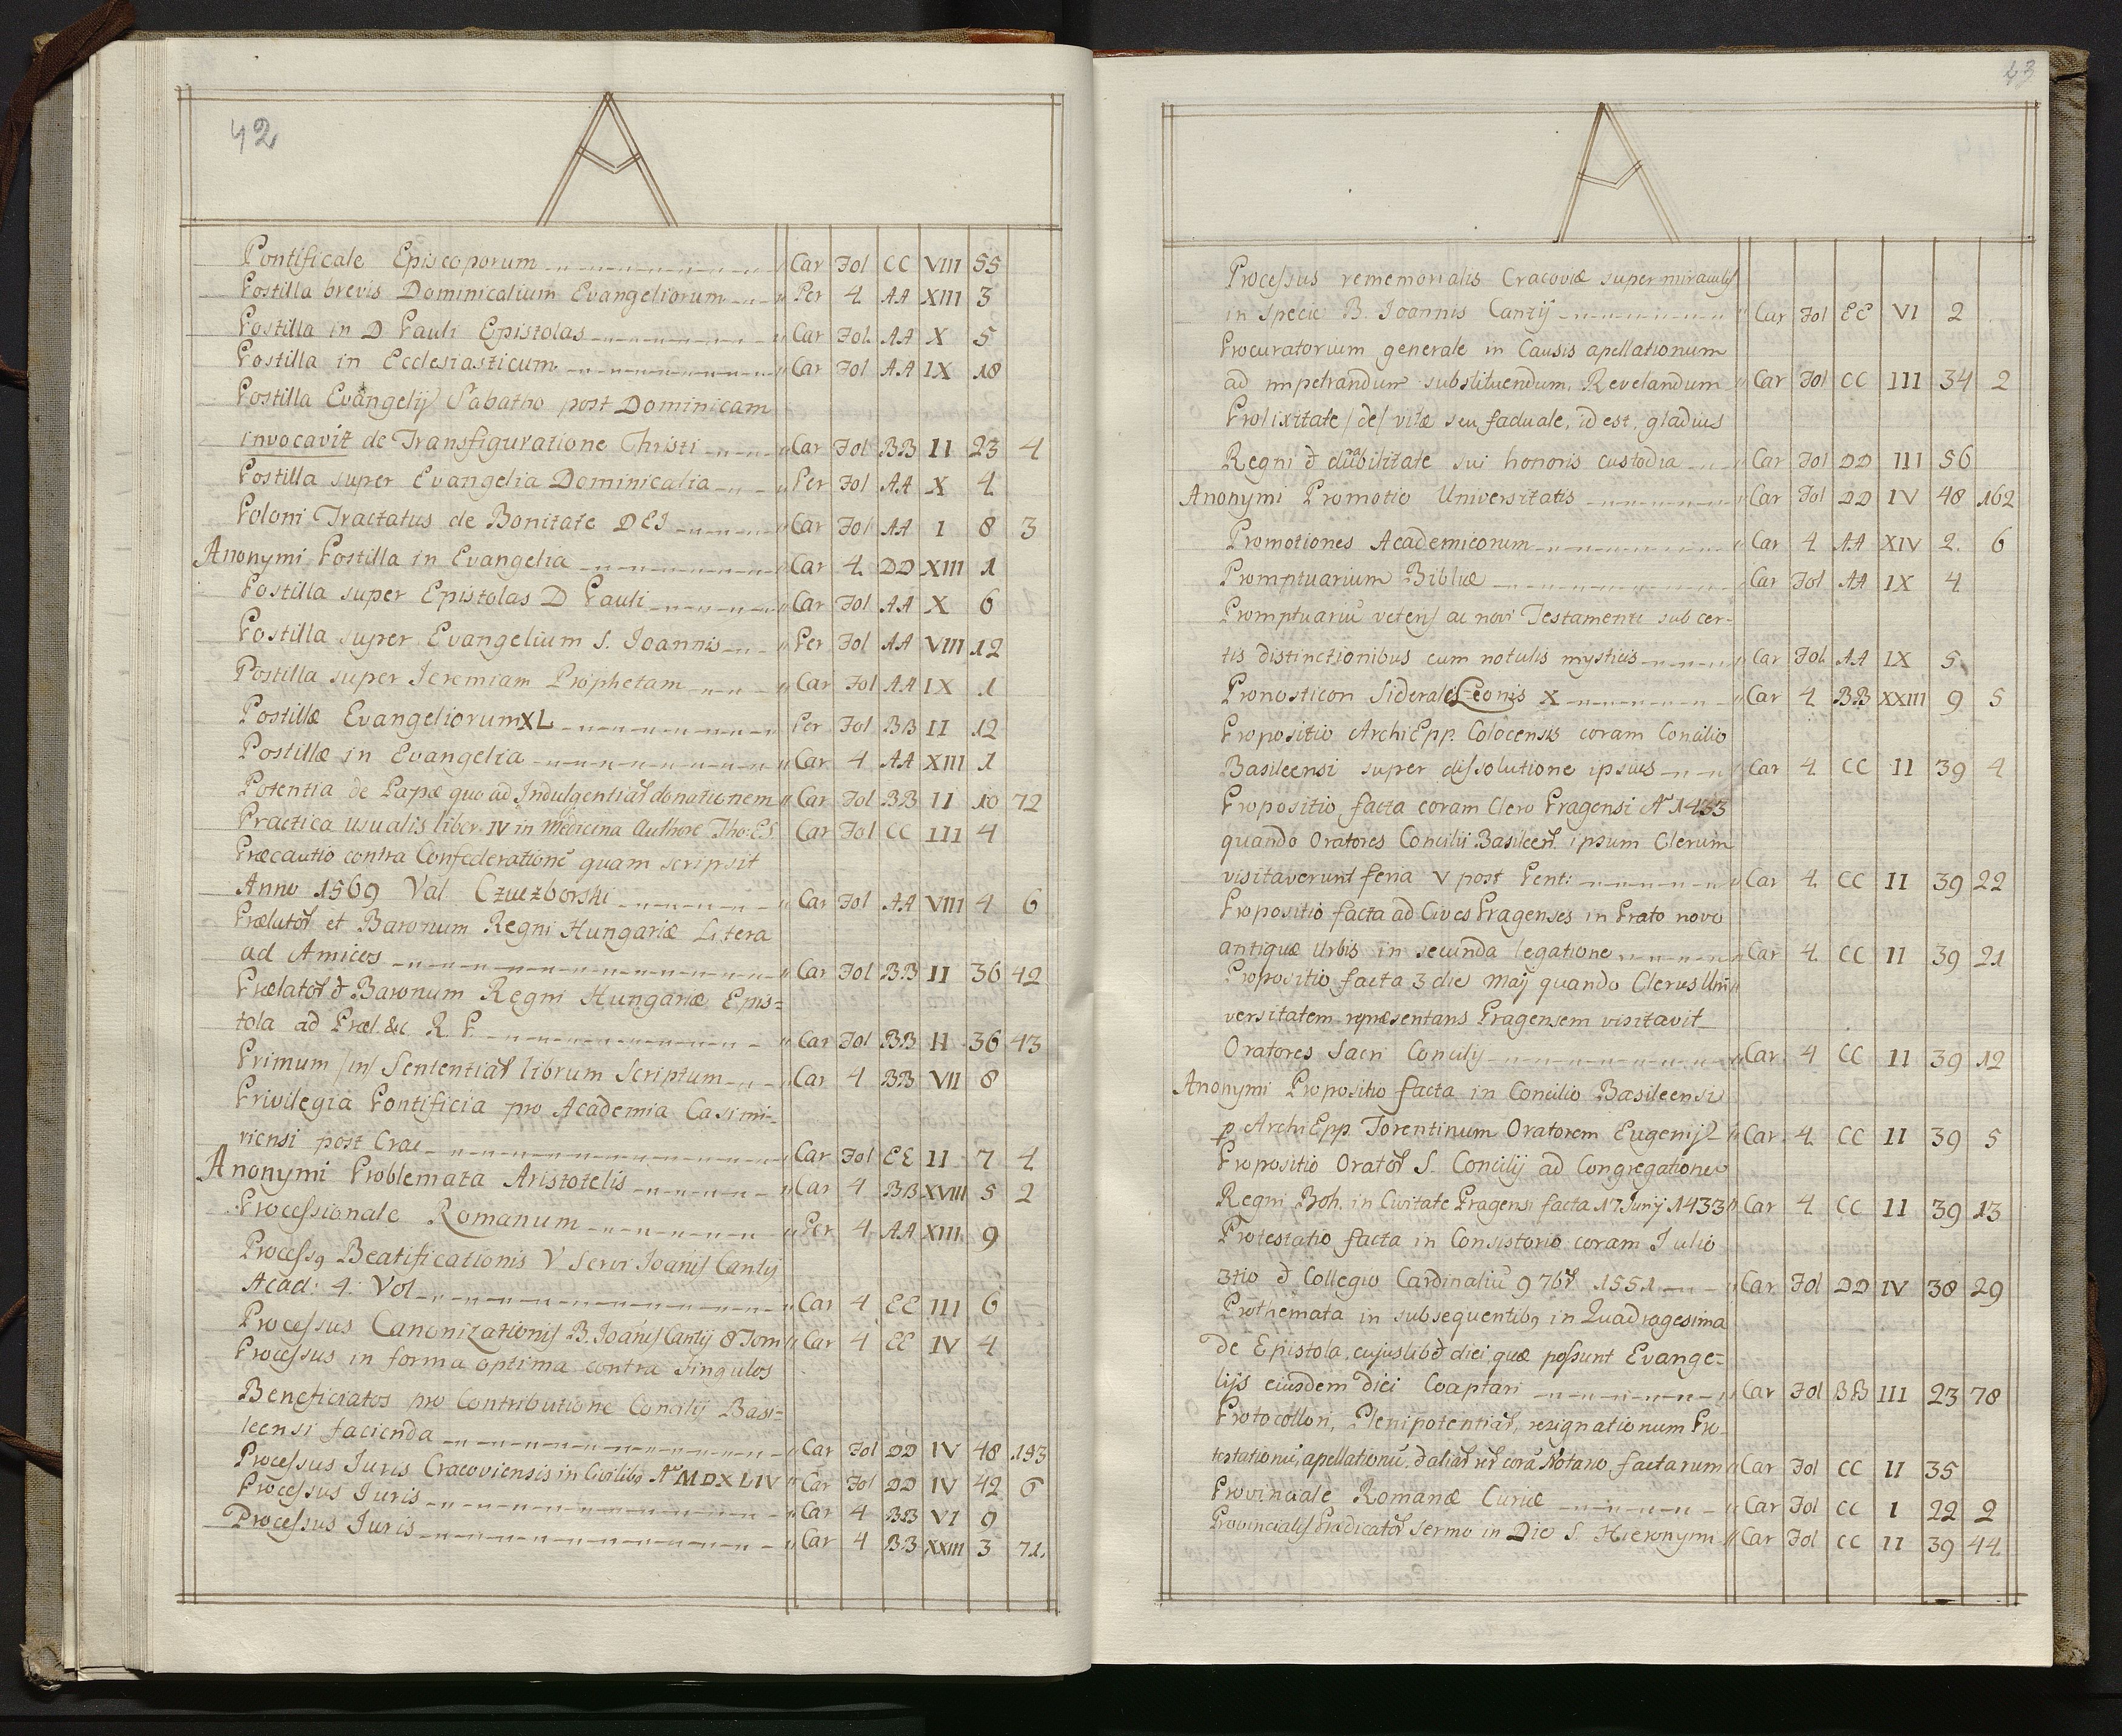 42
A
Pontificale Episcoporum " Car Fol CC VIII 55
Postilla brevis Dominicalium Evangeliorum " Per 4 AA XIII 3
Postilla in D Pauli Epistolas " Car Fol. AA X 5
Postilla in Ecclesiasticum " Car Fol AA IX 18
Postilla Evangelij Sabatho post Dominicam
invocavit de Transfiguratione Christi " Car Fol BB II 23 4
Postilla super Evangelia Dominicalia " Per Fol AA X 4
Poloni Tractatus de Bonitate DEI " Car Fol AA I 8 3
Anonymi Postilla in Evangelia " Car 4 DD XIII 1
Postilla super Epistolas D Pauli " Car Fol AA X 6
Postilla super Evangelium S. Joannis " Per Fol AA VIII 12
Postilla super Jeremiam Prophetam " Car Fol AA IX 1
Postillæ Evangeliorum XL " Per Fol BB II 12
Postillæ in Evangelia " Car 4 AA XIII 1
Potentia de Papæ quo ad Indulgentiaꝝ donationem " Car Fol BB II 10 72
Practica usualis liber IV in Medicina Authore Tho: ES. Car Fol CC III 4
Præcautio contra Confederationē quam scripsit
Anno 1569 Val. " Car Fol AA VIII 4 6
Prælatoꝝ et Baronum Regni Hungariæ Litera
ad Amicos " Car Fol BB II 36 42
Prælatoꝝ & Baronum Regni Hungariæ Epis=
tola ad Præl. &c. R. P. " Car Fol BB II 36 43
Primum /in/ Sententiaꝝ librum Scriptum " Car 4 BB VII 8
Privilegia Pontificia pro Academia Casimi-
riensi post Crac " Car Fol EE II 7 4
Anonymi Problemata Aristotelis " Car 4 BB XVIII 5 2
Processionale Romanum " Per 4 AA XIII 9
Process9 Beatificationis V Servi Joānis Cantij
Acad: 4: Vol " Car 4 EE III 6
Processus Canonizationis B. Joānis Cantij 8 Tom " Car 4 EE IV 4
Processus in forma optima contra singulos
Beneficiatos pro Contributione Concilij Basi=
leensi facienda " Car Fol DD IV 48 193
Processus Juris Cracoviensis in Civilibꝯ Aº MDXLIV " Car Fol DD IV 42 6
Processus Juris " Car 4 BB VI 9
Processus Juris " Car 4 BB XXIII 3 71.
43
A
Processus rememorialis Cracoviæ super miraculis
in specie B. Joannis Cantij " Car Fol EE VI 2
Procuratorium generale in Causis apellationum
ad impetrandum substituendum, Revelandum " Car Fol CC III 34 2
Prolixitate /de/ vitæ seu faduale, id est, gladius
Regni & durabilitate sui honoris custodia " Car Fol DD III 56
Anonymi Promotio Universitatis " Car Fol DD IV 48 162
Promotiones Academicorum " Car 4 AA XIV 2. 6
Promptuarium Bibliæ " Car Fol AA IX 4
Promptuariū veteris ac novi Testamenti sub cer-
tis distinctionibus cum notulis mysticis " Car Fol. AA IX 5
Pronosticon Siderale Leonis X " Car 4 BB XXIII 9 5
Propositio ArchiEpp. Colocensis coram Concilio
Basileensi super dissolutione ipsius " Car 4 CC II 39 4
Propositio facta coram Clero Pragensi Aº 1433
quando Oratores Concilii Basileen̄. ipsum Clerum
visitaverunt feria V post Pent: " Car 4. CC II 39 22
Propositio facta ad Cives Pragenses in Prato novo
antiquæ Urbis in secunda legatione " Car 4. CC II 39 21
Propositio facta 3 die Maij quando Clerus Uni"
versitatem repræsentans Pragensem visitavit
Oratores Sacri Concilij " Car. 4 CC II 39 12
Anonymi Propositio facta in Concilio Basileensi
p ArchiEpp. Torentinum Oratorem Eugenij " Car. 4. CC II 39 5
Propositio Oratoꝝ S. Concilij ad Congregationes
Regni Boh. in Civitate Pragensi facta 17 Junij 1433 " Car 4 CC II 39 13
Protestatio facta in Consistorio coram Julio
3tio & Collegio Cardinaliū 9 7bꝝ 1551 " Car Fol DD IV 38 29
Prothemata in subsequentibꝯ in Quadragesima
de Epistola, cujuslibꝫ diei, quæ possunt Evange=
lijs eiusdem Diei Coaptari " Car Fol BB III 23 78
Protocollon, Plenipotentiaꝝ, resignationum Pro-
testationū, apellationū, & aliaꝝ reꝝ corā Notario factarum " Car Fol CC II 35
Provinciale Romanæ Curiæ " Car Fol CC I 22 2
Provincialis Prædicatoꝝ Sermo in Die S. Hieronymi " Car Fol CC II 39 44